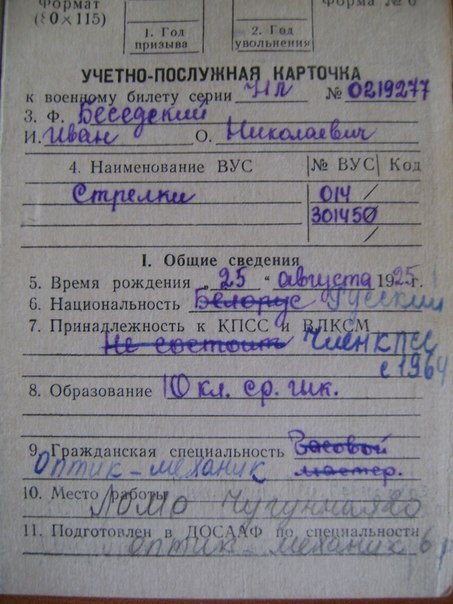 Формат
(80×115)
1. Год
призыва
2. Год
увольнения
Форма № 6
УЧЕТНО-ПОСЛУЖНАЯ КАРТОЧКА
к военному билету серии НЛ № 0219277
3. Ф. Беседский
И. Иван О. Николаевич
4. Наименование ВУС № ВУС Код
Стрелки 014 /
301450 /
I. Общие сведения
5. Время рождения „25“ августа 1925 г.
6. Национальность Белорус Русский
7. Принадлежность к КПСС и ВЛКСМ
Не состоит Член КПСС
с 1964
8. Образование 10 кл. ср. шк.
9. Гражданская специальность Часовой
Оптик-механик мастер.
10. Место работы
ЛОМО Чугунная 20
11. Подготовлен в ДОСААФ по специальности
оптик-механик 6 р